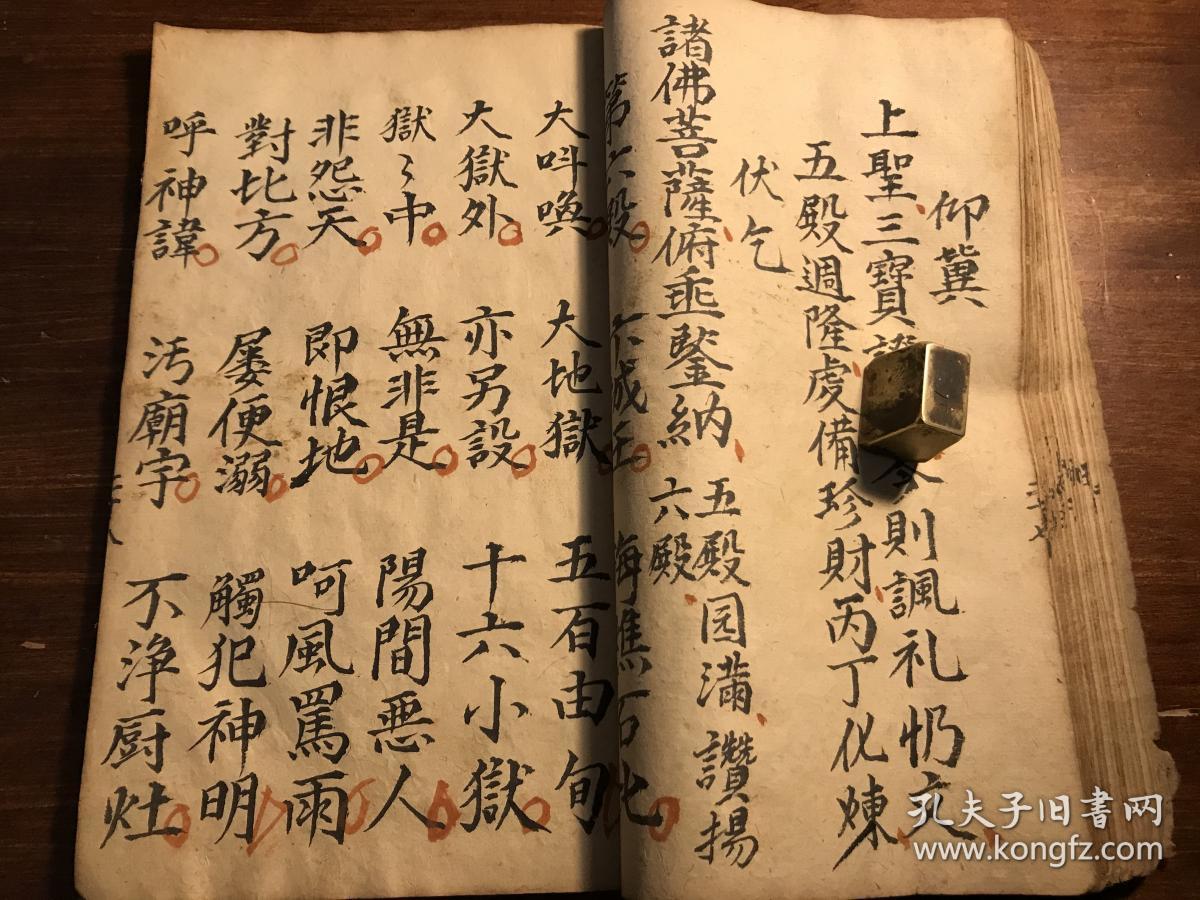 仰冀
上聖三寶證 則諷礼忏文
五殿週隆虔備珍財丙丁化煉
伏乞
諸佛菩薩俯垂鑒納 五殿园滿讚揚
六殿
第六殿 卞城王 海礁石北
大呌喚 大地獄 五百由旬
大獄外 亦另設 十六小獄
獄〻中 無非是 陽間悪人
非怨天 即恨地 呵風罵雨
對比方 屡便溺 觸犯神明
呼神諱 汚廟宇 不浄厨灶
孔夫子旧书网
www.kongfz.com